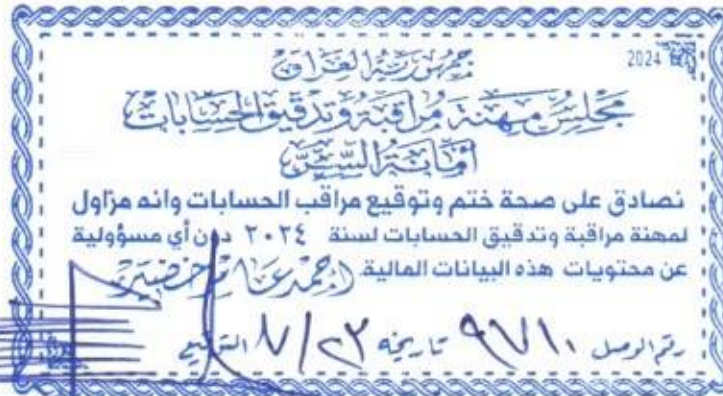 2024
جمهورية العراق
مجلس مهنة مراقبة وتدقيق الحسابات
أمانة السر
نصادق على صحة ختم وتوقيع مراقب الحسابات وانه مزاول
لمهنة مراقبة وتدقيق الحسابات لسنة ٢٠٢٤ دون أي مسؤولية
عن محتويات هذه البيانات المالية. احمد خضير
رقم الوصل ٩٧١٠ تاريخه ٧/٢٣ التوقيع